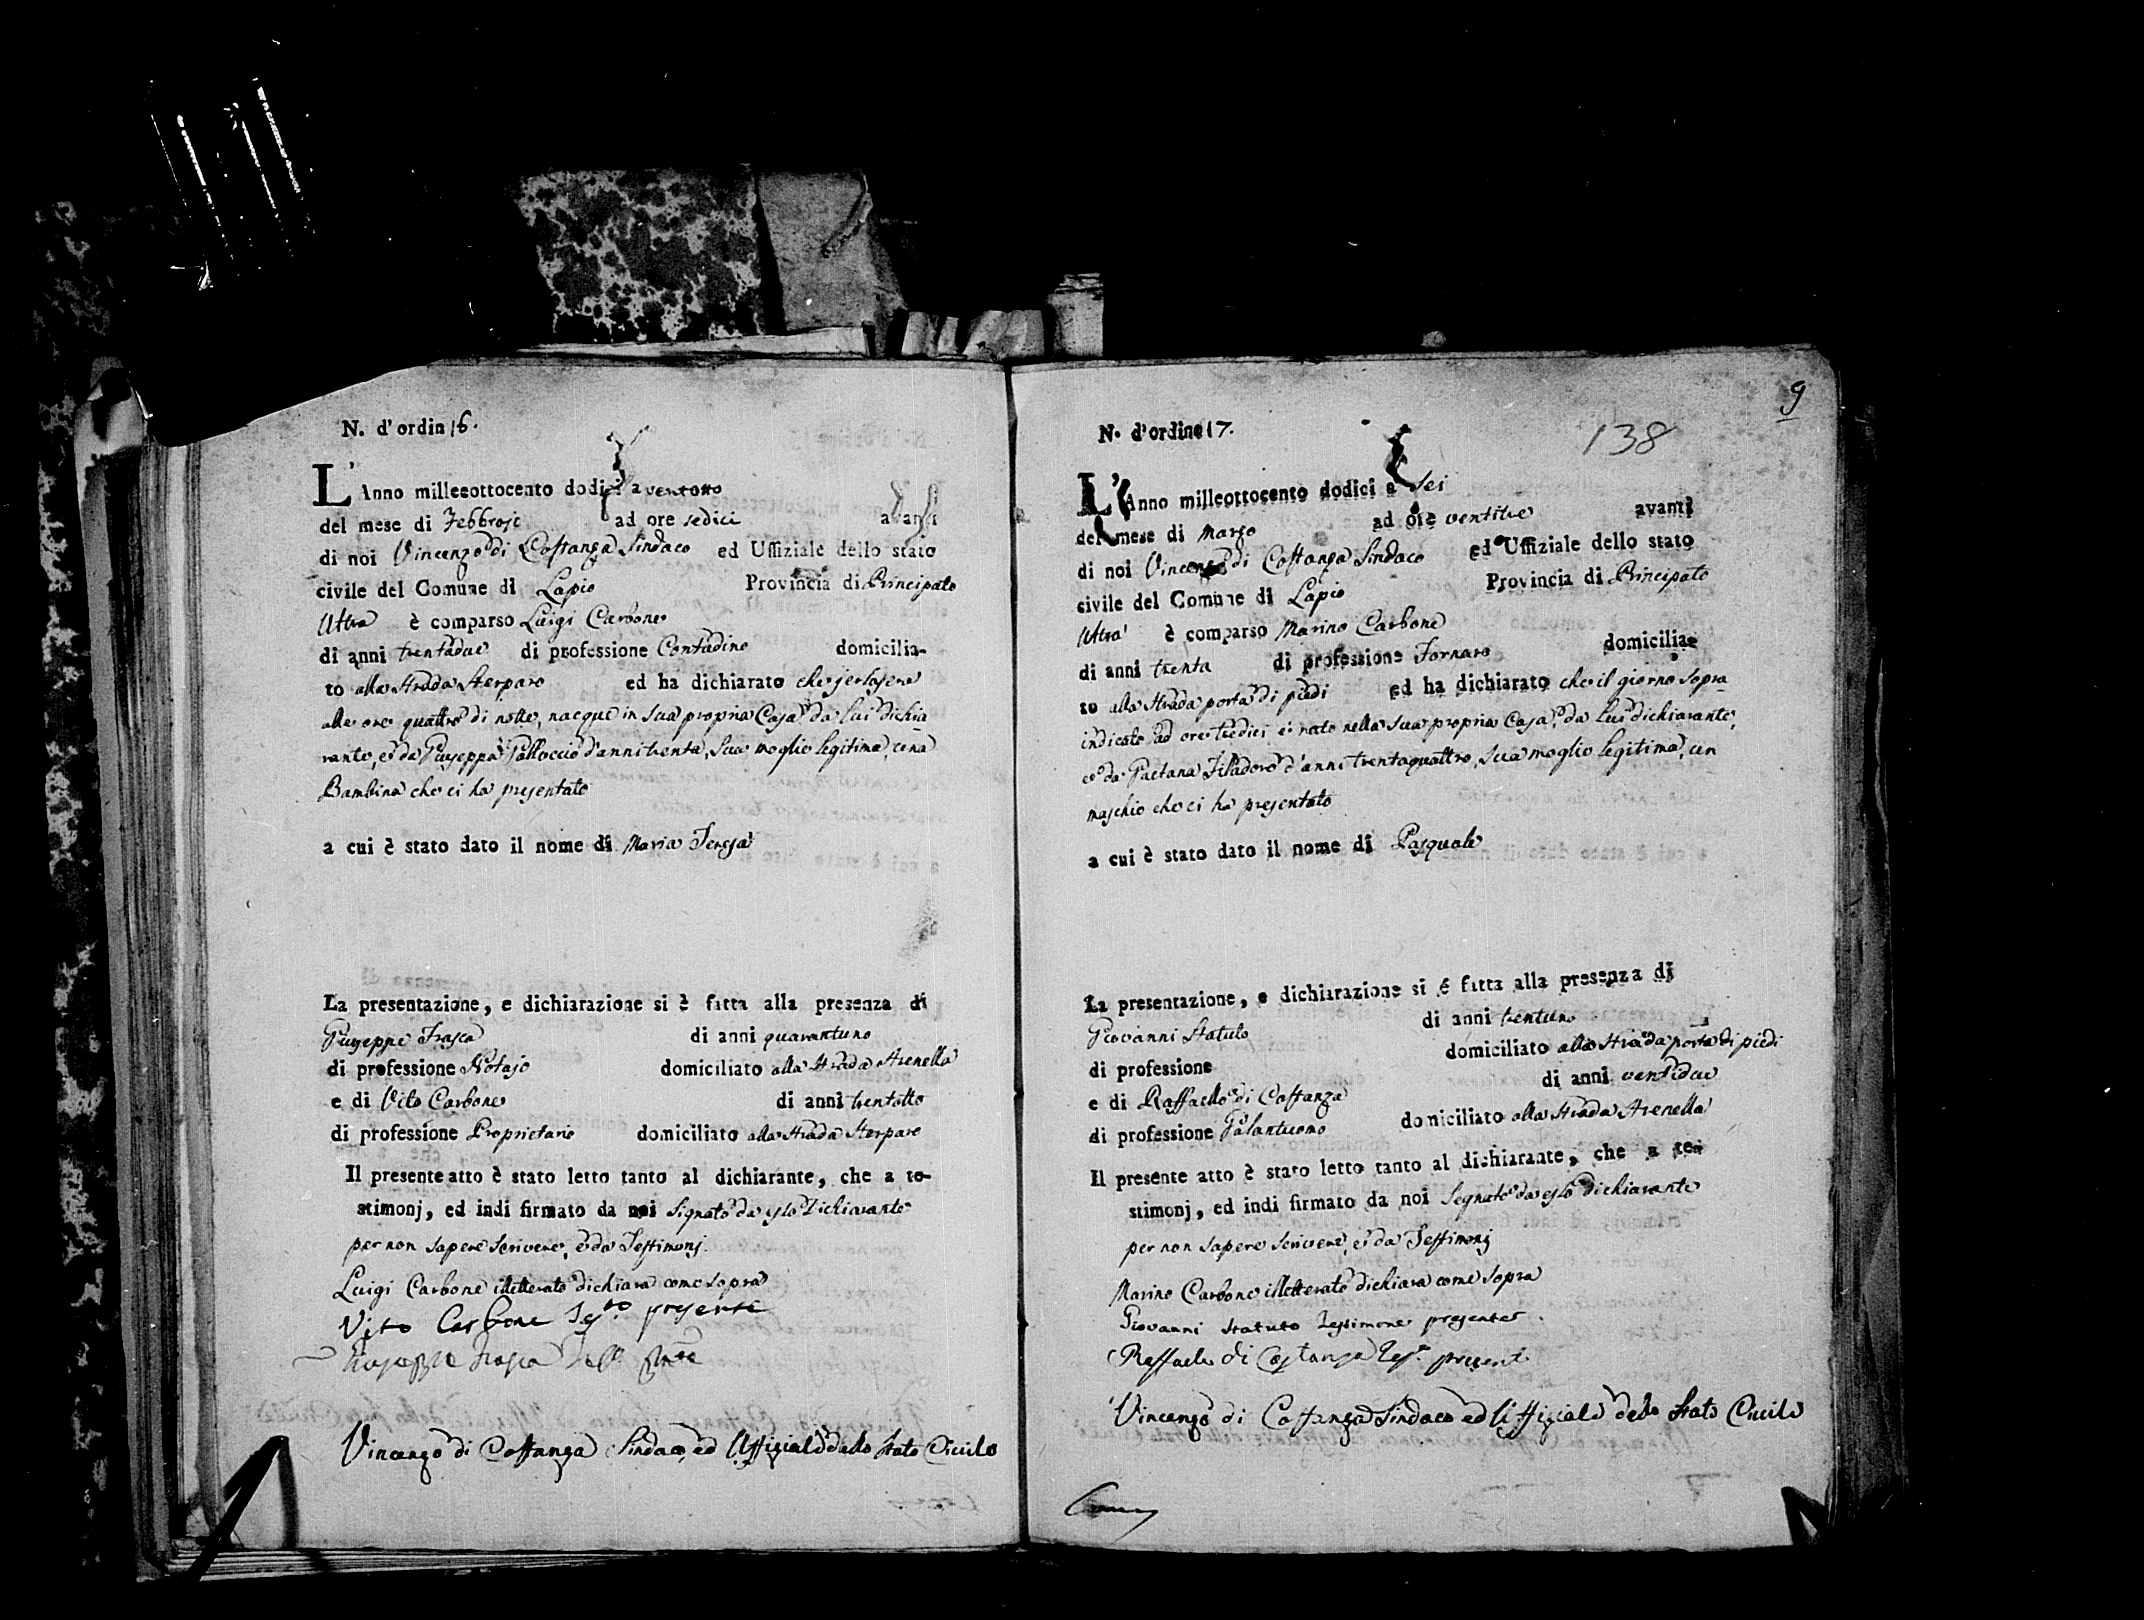 N. d'ordin 16.
L'Anno milleeottocento dodici a ventotto
del mese di Febbrajo ad ore sedici avanti
di noi Vincenzo di Costanza Sindaco ed Uffiziale dello stato
civile del Comune di Lapio Provincia di Principato
Ultra è comparso Luigi Carbone
di anni trentadue di professione Contadino domicilia-
to alla Strada Sterparo ed ha dichiarato che jerlasera
alle ore quattro di notte, nacque in sua propria Casa da lui dichia
rante, e da Giuseppa d'anni trenta, sua moglie legitima, una
Bambina che ci ha presentato
a cui è stato dato il nome di Maria Teresa
La presentazione, e dichiarazione si è fatta alla presenza di
Giuseppe Frasca di anni quarantuno
di professione Notajo domiciliato alla Strada Arenella
e di Vito Carbone di anni trentotto
di professione Proprietario domiciliato alla Strada Sterparo
Il presente atto è stato letto tanto al dichiarante, che a te-
stimonj, ed indi firmato da noi Signato da esso Dichiarante
per non sapere scrivere, e da Testimonj.
Luigi Carbone illetterato dichiara come sopra
Vito Carbone Testo presente
Giuseppe Frasca
Vincenzo di Costanza Sindaco, ed Uffiziale dello Stato Civile
9
138
N. d'ordine 17.
L'Anno milleottocento dodici a Sei
del mese di Marzo ad ore ventitre avanti
di noi Vincenzo di Costanza Sindaco ed Uffiziale dello stato
civile del Comune di Lapio Provincia di Principato
Ultra è comparso Marino Carbone
di anni trenta di professione Fornaro domicilia-
to alla Strada porta di piedi ed ha dichiarato che il giorno sopra
indicato ad ore tredici è nato nella sua propria Casa, da lui dichiarante,
e da Gaetana Filadoro d'anni trentaquattro, sua moglie legitima, un
maschio che ci ha presentato
a cui è stato dato il nome di Pasquale
La presentazione, e dichiarazione si è fatta alla presenza di
Giovanni Statuto di anni trentuno
di professione domiciliato alla Strada porta di piedi
e di Raffaele di Costanza di anni ventidue
di professione Galantuomo domiciliato alla Strada Arenella
Il presente atto è stato letto tanto al dichiarante, che a te-
stimonj, ed indi firmato da noi Segnato da esso dichiarante
per non sapere scrivere, e da Testimonj
Marino Carbone illetterato dichiara come sopra
Giovanni Statuto Testimone presente
Raffaele di Costanza Teste presente
Vincenzo di Costanza Sindaco ed Uffiziale dello Stato Civile